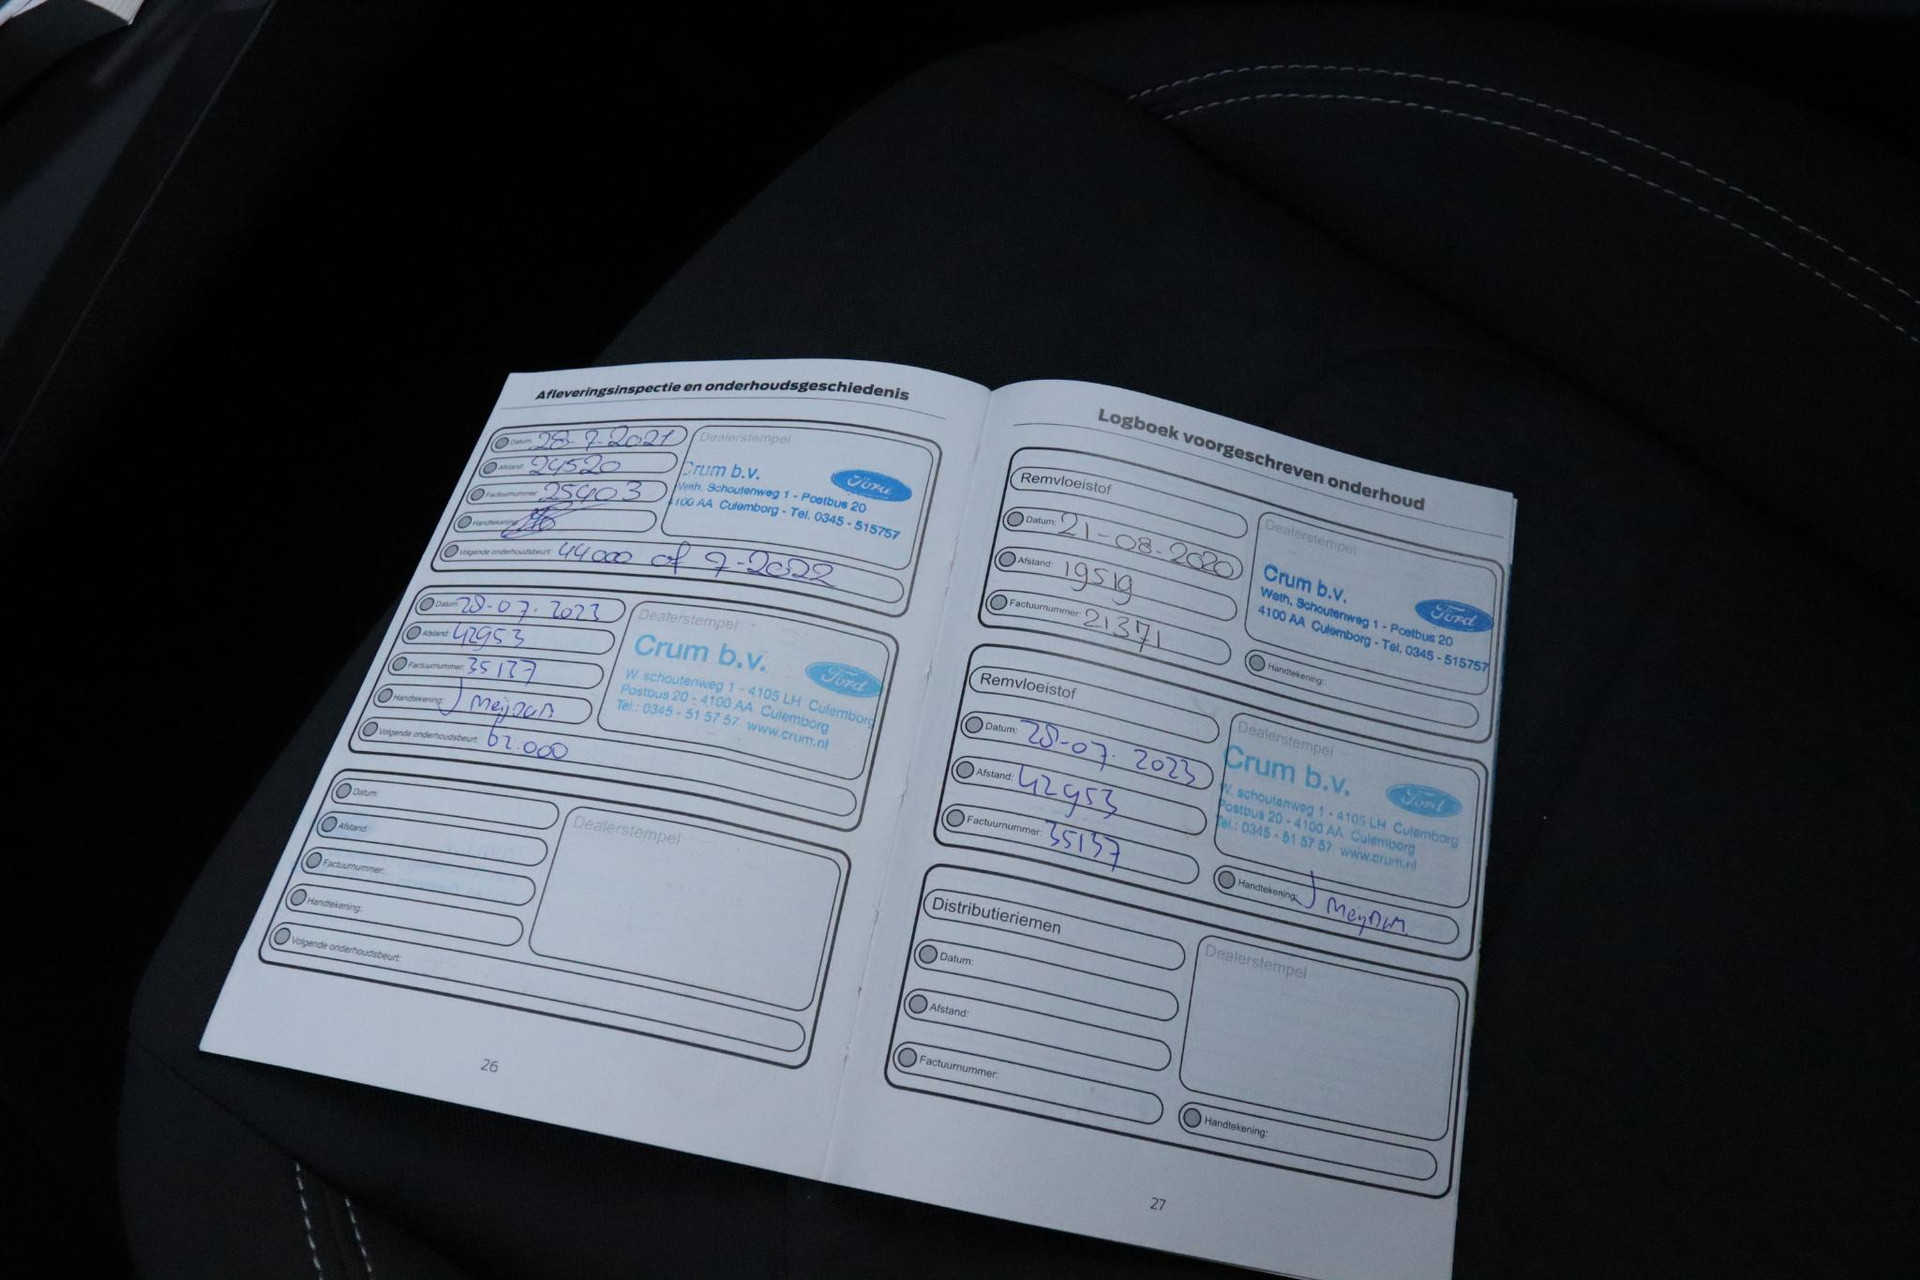 Afleveringsinspectie en onderhoudsgeschiedenis
Datum: 28-7-2021
Afstand: 24520
Factuurnummer: 25903
Handtekening:
Volgende onderhoudsbeurt: 44000 of 7-2022
Dealerstempel
Crum b.v.
Weth. Schoutenweg 1 - Postbus 20
4100 AA Culemborg - Tel. 0345 - 515757
Ford
Datum: 28-07-2023
Afstand: 42953
Factuurnummer: 35137
Handtekening:
Volgende onderhoudsbeurt: 62.000
Dealerstempel
Crum b.v.
Ford
W. schoutenweg 1 - 4105 LH Culemborg
Postbus 20 - 4100 AA Culemborg
Tel.: 0345 - 51 57 57 www.crum.nl
Datum:
Afstand:
Factuurnummer:
Handtekening:
Volgende onderhoudsbeurt:
Dealerstempel
26
Logboek voorgeschreven onderhoud
Remvloeistof
Datum: 21-08-2020
Afstand: 19519
Factuurnummer: 21371
Dealerstempel
Crum b.v.
Weth. Schoutenweg 1 - Postbus 20
4100 AA Culemborg - Tel. 0345 - 515757
Ford
Handtekening:
Remvloeistof
Datum: 28-07-2023
Afstand: 42953
Factuurnummer: 35137
Dealerstempel
Crum b.v.
Ford
W. schoutenweg 1 - 4105 LH Culemborg
Postbus 20 - 4100 AA Culemborg
Tel.: 0345 - 51 57 57 www.crum.nl
Handtekening:
Distributieriemen
Datum:
Afstand:
Factuurnummer:
Dealerstempel
Handtekening:
27